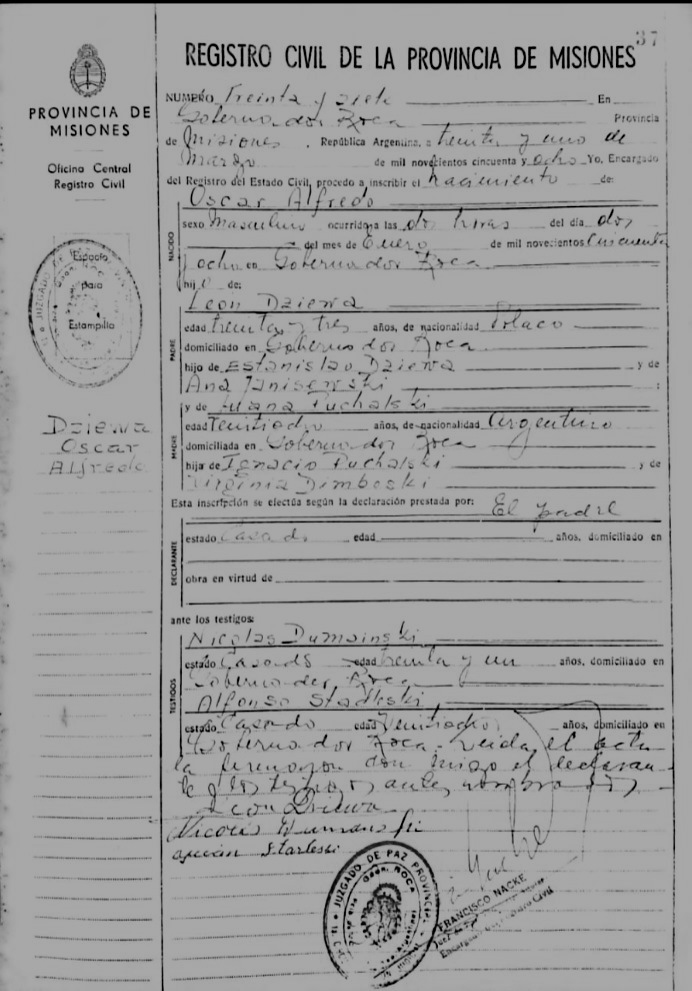 37
REGISTRO CIVIL DE LA PROVINCIA DE MISIONES
PROVINCIA DE
MISIONES
Oficina Central
Registro Civil
Espacio
para
Estampilla
Dziewa
Oscar
Alfredo
NUMERO Treinta y siete En
Gobernador Roca Provincia
de Misiones, República Argentina, a treinta y uno de
Marzo de mil novecientos cincuenta y ocho Yo, Encargado
del Registro del Estado Civil, procedo a inscribir el nacimiento de:
Oscar Alfredo
NACIDO
sexo Masculino ocurrido a las dos horas del día dos
del mes de Enero de mil novecientos cincuenta
y ocho en Gobernador Roca
hijo de:
Leon Dziewa
PADRE
edad treinta y tres años, de nacionalidad Polaco
domiciliado en Gobernador Roca
hijo de Estanislao Dziewa y de
Ana Janisewski ;
y de Juana Puchalski
MADRE
edad Veintiocho años, de nacionalidad Argentino
domiciliada en Gobernador Roca
hija de Ignacio Puchalski y de
Virginia Dimboski
Esta inscripción se efectúa según la declaración prestada por: El padre
DECLARANTE
estado Casado edad años, domiciliado en
obra en virtud de
ante los testigos:
TESTIGOS
Nicolas Dumainski
estado Casado edad treinta y un años, domiciliado en
Gobernador Roca
Alfonso
estado Casado edad Veintiocho años, domiciliado en
Gobernador Roca. Leida el acta
la firmaron don migo el declaran
te y los testigos antes nombrados
Leon Dziewa
JUZGADO DE PAZ
Gdor. ROCA
JUZGADO DE PAZ PROVINCIAL
Gdor. ROCA
FRANCISCO NACKE
Juez de Paz
Encargado Registro Civil